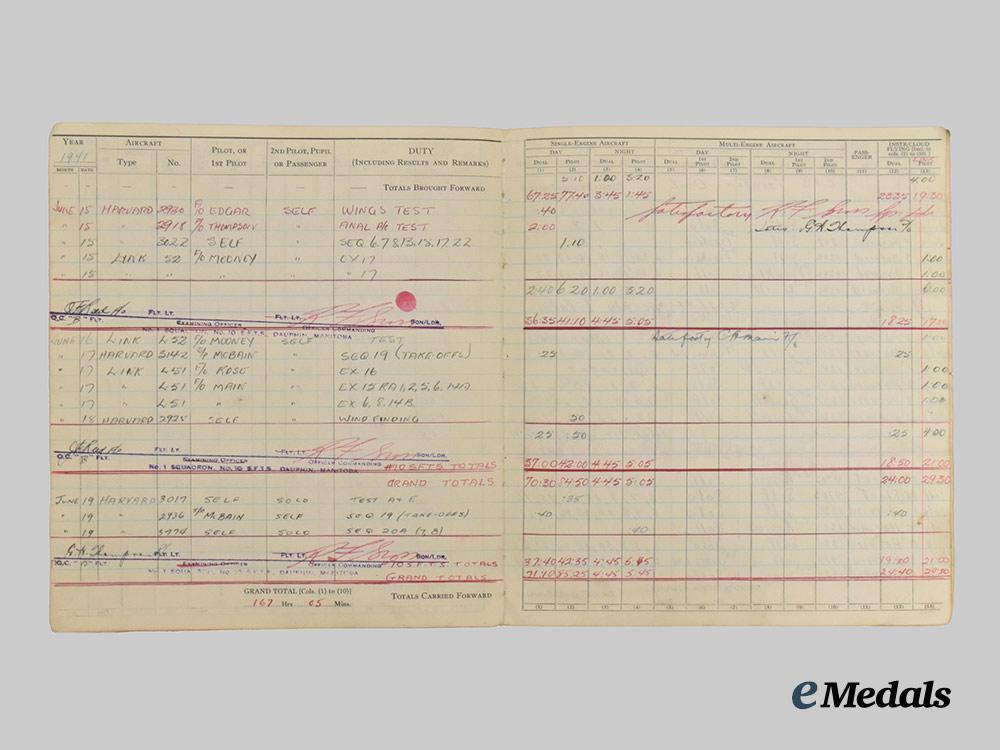 YEAR AIRCRAFT PILOT, OR 2ND PILOT, PUPIL DUTY SINGLE-ENGINE AIRCRAFT MULTI-ENGINE AIRCRAFT PASS- INSTR/CLOUD
1941 Type No. 1ST PILOT OR PASSENGER (INCLUDING RESULTS AND REMARKS) DAY NIGHT DAY NIGHT ENGER
MONTH DATE DUAL PILOT DUAL PILOT DUAL 1ST PILOT 2ND PILOT DUAL 1ST PILOT 2ND PILOT DUAL PILOT
(1) (2) (3) (4) (5) (6) (7) (8) (9) (10) (11) (12) (13)
— — — — — TOTALS BROUGHT FORWARD 1:00 3:20
3:45 1:45 19:30
JUNE 15 HARVARD 2930 F/O EDGAR SELF WINGS TEST :40 Satisfactory
" 15 " 2918 P/O THOMPSON " FINAL A/C TEST 2:00
" 15 3022 SELF SEQ 6.7.8.13.15.17.22 1:10
" 15 LINK 52 F/O MOONEY " EX 17 1:00
" 15 " 17 1:00
2:40 6:20 1:00 3:20
FLT. LT. FLT. LT. SQN/LDR.
O.C. "B" FLT. EXAMINING OFFICER OFFICER COMMANDING 36:35 41:10 4:45 5:05 18:25
NO. 1 SQUADRON, NO. 10 S.F.T.S. DAUPHIN, MANITOBA
JUNE 16 LINK L52 F/O MOONEY SELF TEST
" 17 HARVARD 3142 MCBAIN " SEQ 19 (TAKE-OFFS) :25 :25
" 17 LINK L51 F/O ROSE " EX 16 1:00
" 17 L51 F/O MAIN " 1:00
" 17 L51 " EX 6, 8. 14B. 1:00
" 18 HARVARD 2925 SELF " WIND FINDING :50
:25 :50 :25 4:00
FLT. LT. FLT. LT. SQN/LDR.
O.C. "B" FLT. EXAMINING OFFICER OFFICER COMMANDING #10 S.F.T.S. TOTALS 37:00 42:00 4:45 5:05 18:50 21:00
NO. 1 SQUADRON, NO. 10 S.F.T.S. DAUPHIN, MANITOBA
GRAND TOTALS 70:30 84:50 4:45 5:05 24:00 29:30
JUNE 19 HARVARD 3017 SELF SOLO TEST A+E :35
" 19 2936 MCBAIN SELF SEQ 19 (TAKE-OFFS) :40 :40
" 19 3774 SELF SOLO SEQ 20A (7,8) :40
FLT. LT. FLT. LT. SQN/LDR.
EXAMINING OFFICER OFFICER COMMANDING 10 S.F.T.S. TOTALS 37:40 42:35 4:45 5:45 21:00
DAUPHIN, MANITOBA GRAND TOTALS 71:10 85:25 4:45 5:45 24:40 29:30
GRAND TOTAL [Cols. (1) to (10)] TOTALS CARRIED FORWARD
167 Hrs 05 Mins.
(1) (2) (3) (4) (5) (6) (7) (8) (9) (10) (11) (12) (13)
eMedals